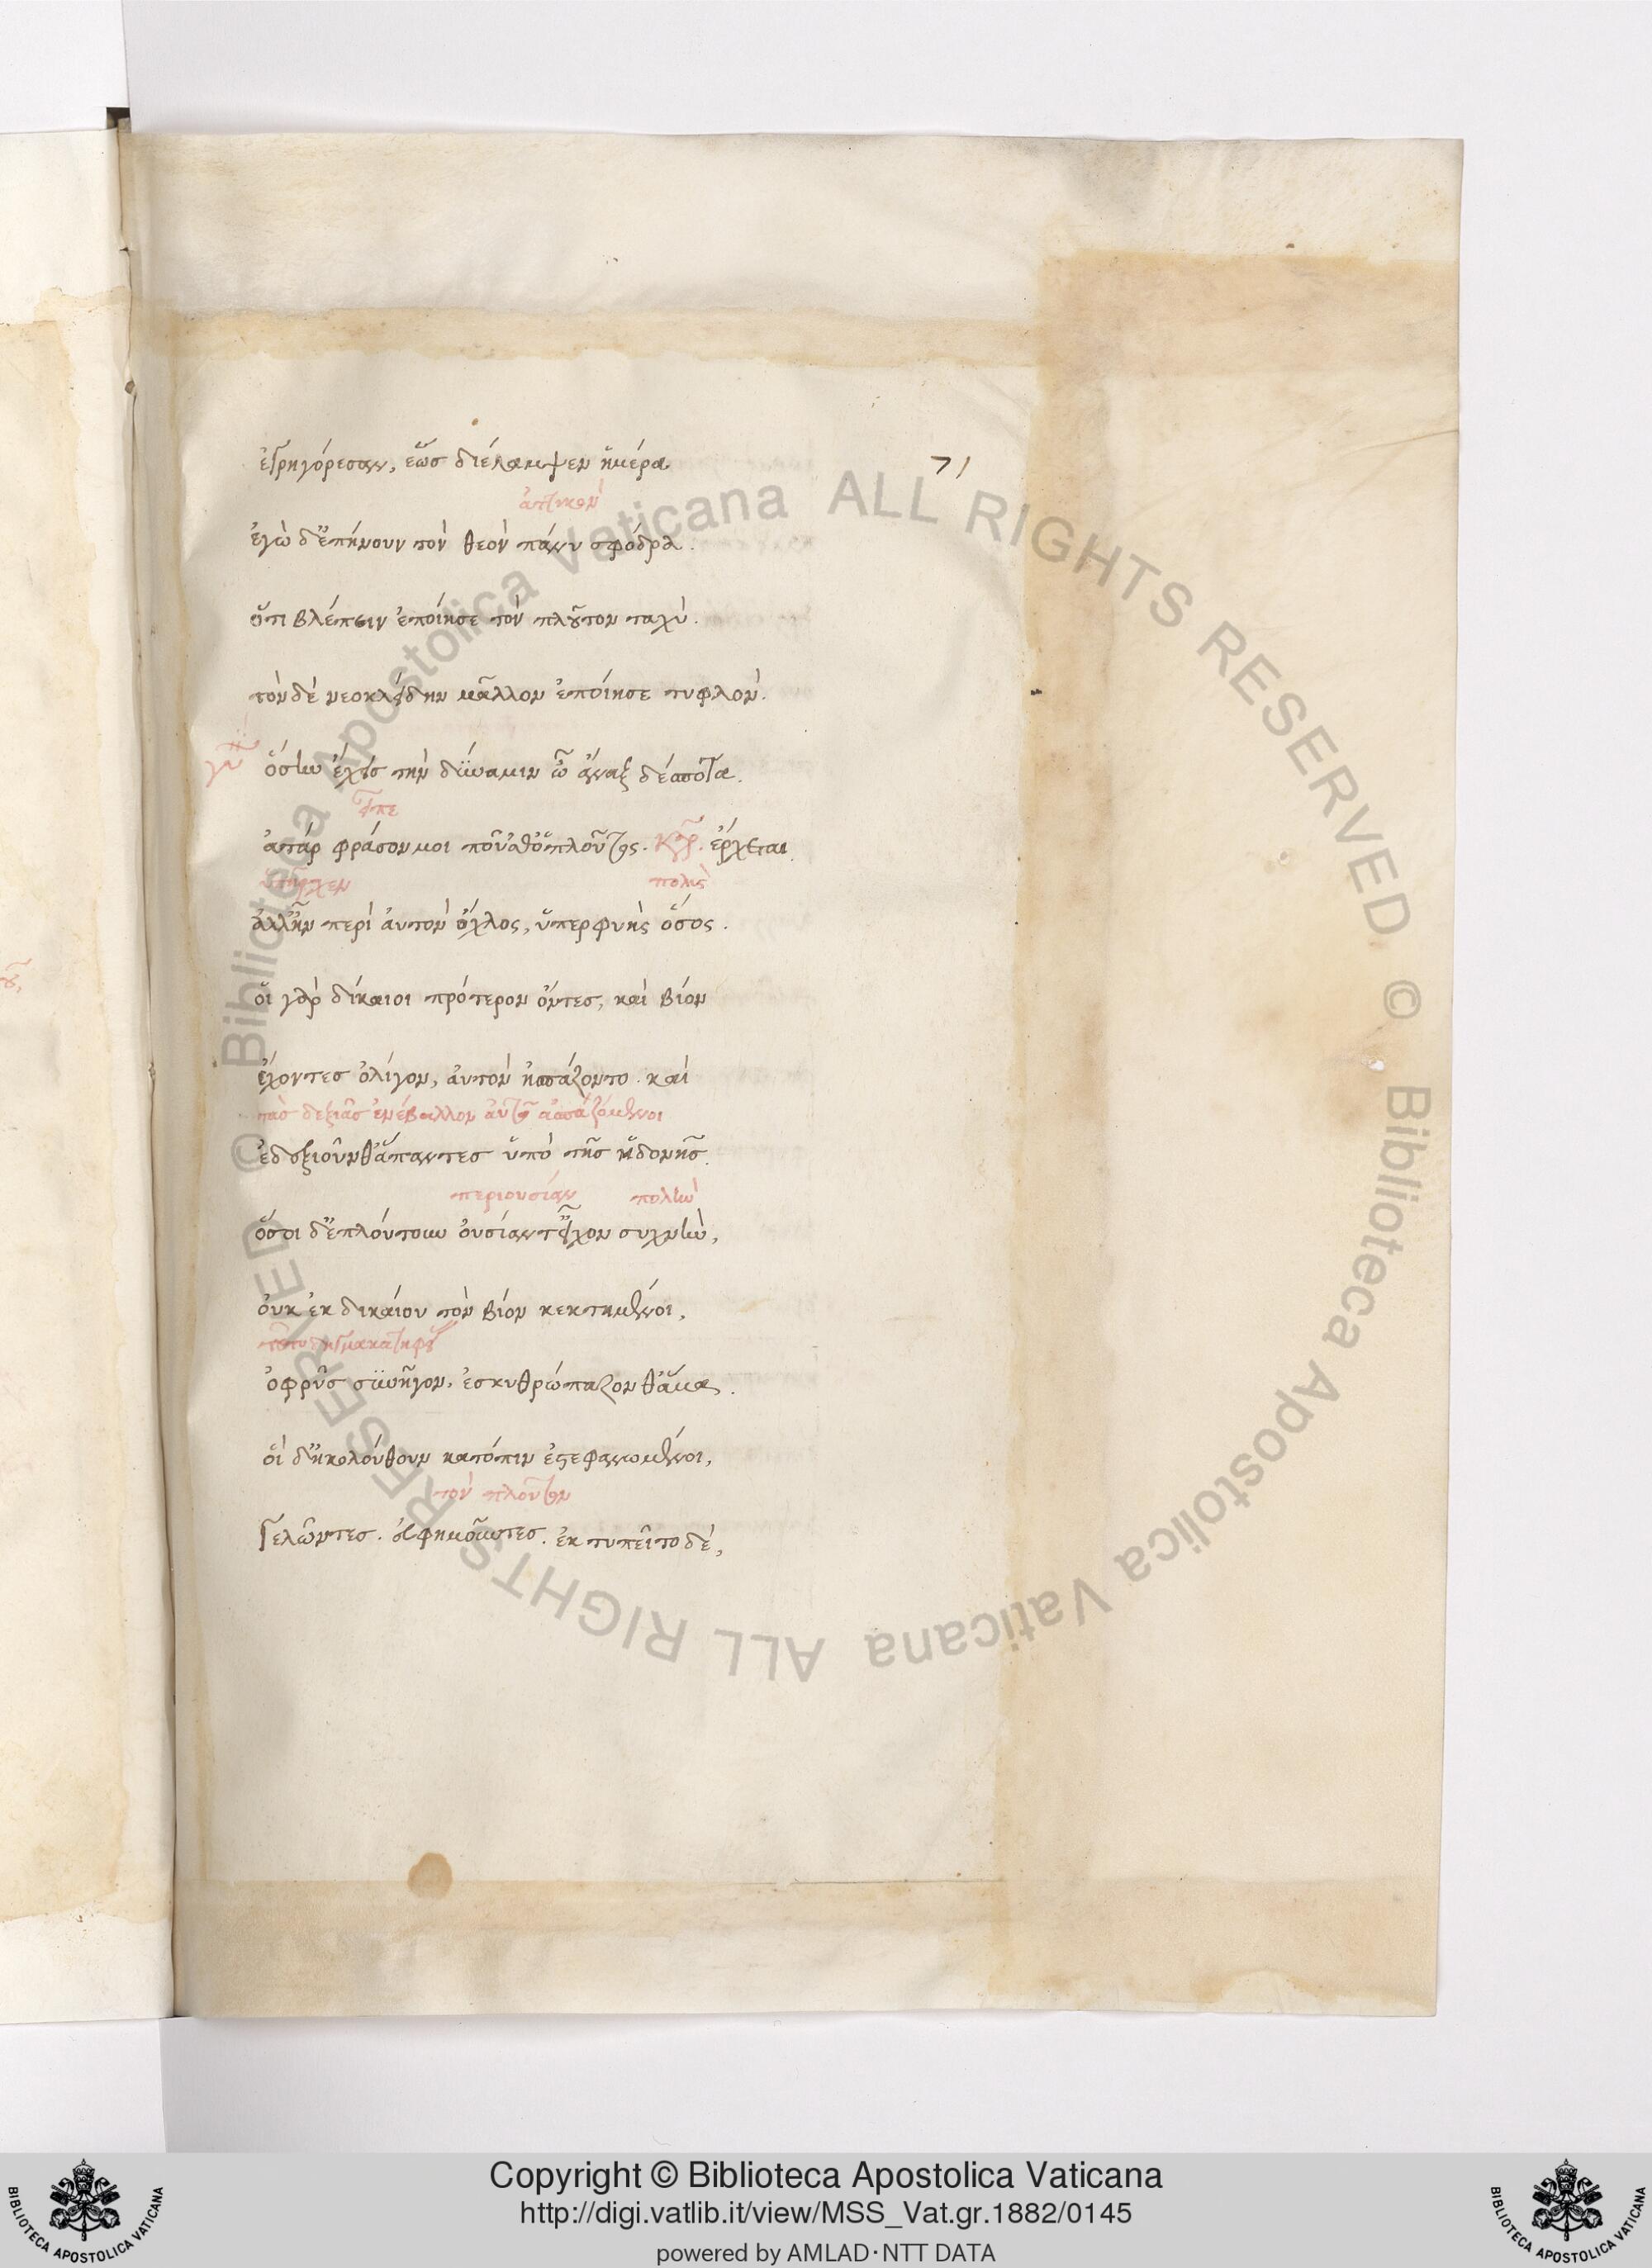 71
ἐγρηγόρεσαν, ἕως διέλαμψεν ἡμέρα
ἀττικὸν
ἐγὼ δ' ἐπήνουν τὸν θεὸν πάνυ σφόδρα.
ὅτι βλέπειν ἐποίησε τὸν πλοῦτον ταχύ.
τὸν δὲ νεοκλείδην μᾶλλον ἐποίησε τυφλόν.
γυ ὅσην ἔχεις τὴν δύναμιν ὦ ἄναξ δέσποτα.
εἰπε
ἀτάρ φράσον μοι ποῦ 'σθ' ὁ πλοῦτος. καρ. ἔρχεται.
ὑπῆρχεν πολὺς
ἀλλ' ἦν περὶ αὐτὸν ὄχλος, ὑπερφυὴς ὅσος.
οἱ γὰρ δίκαιοι πρότερον ὄντες, καὶ βίον
ἔχοντες ὀλίγον, αὐτὸν ἠσπάζοντο. καὶ
τὰς δεξιὰς ἐνέβαλλον αὐτῷ ἀσπαζόμενοι
ἐδεξιοῦνθ' ἅπαντες ὑπὸ τῆς ἡδονῆς.
περιουσίαν πολὺν
ὅσοι δ' ἐπλούτουν οὐσίαν τ' εἶχον συχνὴν,
οὐκ ἐκ δικαίου τὸν βίον κεκτημένοι,
ὀφρῦς συνῆγον, ἐσκυθρώπαζον θ' ἅμα.
οἱ δ' ἠκολούθουν κατόπιν ἐστεφανωμένοι,
τὸν πλοῦτον
γελῶντες. εὐφημοῦντες. ἐκτυπεῖτο δέ,
© Biblioteca Apostolica Vaticana ALL RIGHTS RESERVED © Biblioteca Apostolica Vaticana ALL RIGHTS RESERVED
BIBLIOTECA APOSTOLICA VATICANA
Copyright © Biblioteca Apostolica Vaticana
http://digi.vatlib.it/view/MSS_Vat.gr.1882/0145
powered by AMLAD·NTT DATA
BIBLIOTECA APOSTOLICA VATICANA